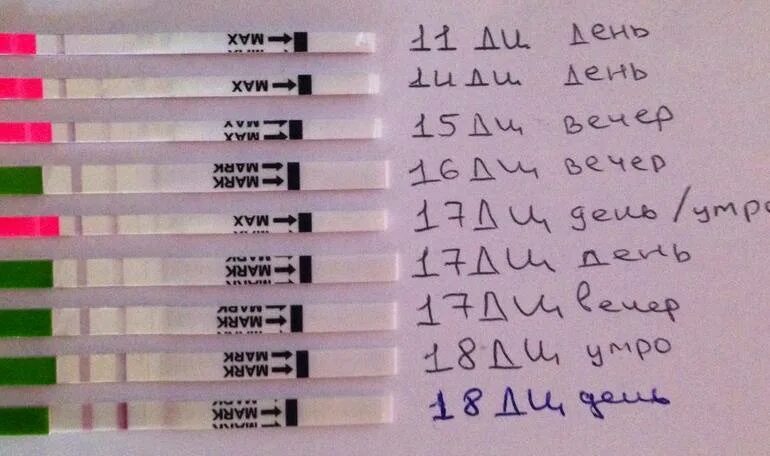 MAX 11 ДЦ день
MAX 14 ДЦ день
MAX 15 ДЦ вечер
MARK MARK 16 ДЦ вечер
MAX 17 ДЦ день/утро
MARK 17 ДЦ день
MARK 17 ДЦ вечер
MARK 18 ДЦ утро
MARK 18 ДЦ день